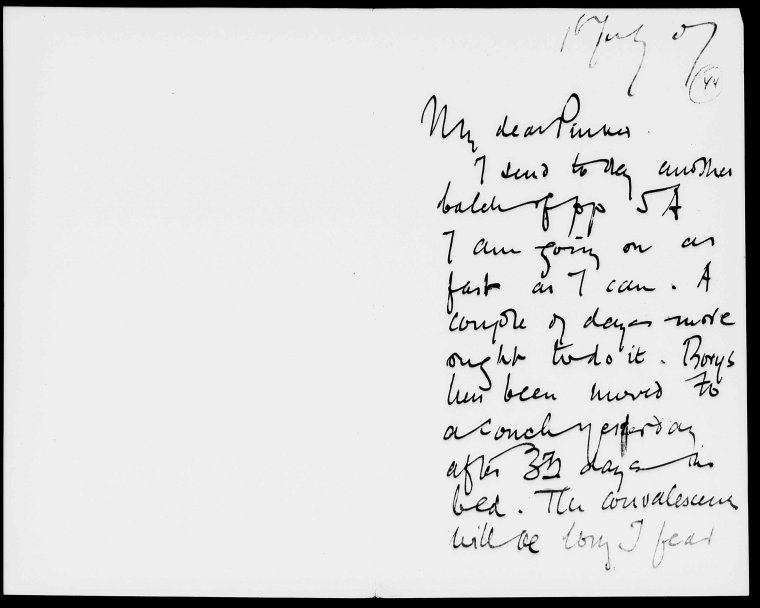 July 07
44
My dear Pinker.
I send to day another
batch of pp 5A
I am going on as
fast as I can. A
couple of days more
ought to do it. Borys
has been moved to
a couch yesterday
after days in
bed. The convalescence
will be long I fear